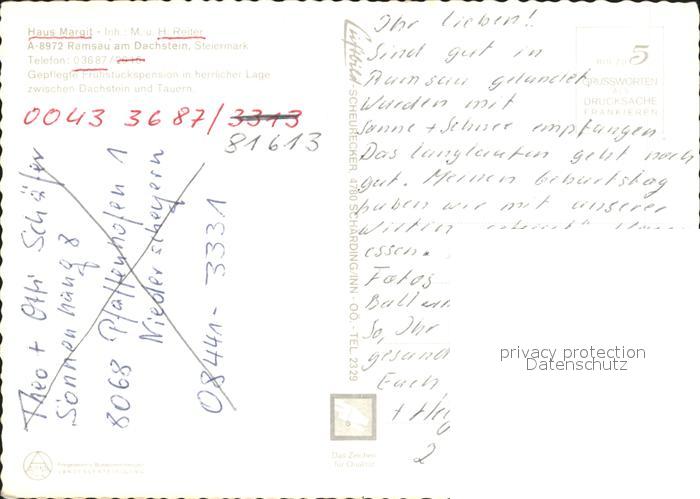 Haus Margit · Inh.: M. u. H. Reiter
A-8972 Ramsau am Dachstein, Steiermark
Telefon: 03687/
Gepflegte Frühstückspension in herrlicher Lage
zwischen Dachstein und Tauern.
0043 3687/3313
81613
Theo + Otti Schäfer
Sonnenhang 8
8068 Pfaffenhofen 1
Niederscheyern
08441- 3331
Luftbild-SCHEURECKER, 4780 SCHÄRDING/INN - OÖ. - TEL. 2329
BIS ZU 5
GRUSSWORTEN
ALS
DRUCKSACHE
FRANKIEREN
Ihr Lieben!
Sind gut in
Ramsau gelandet
Wurden mit
Sonne + Schnee empfangen.
Das Langlaufen geht noch
gut. Meinen Geburtstag
haben wir mit unserer
Wirtin
essen.
Fotos
Ball
So, Ihr
gesund
Euch
+
2
Das Zeichen
für Qualität
privacy protection
Datenschutz